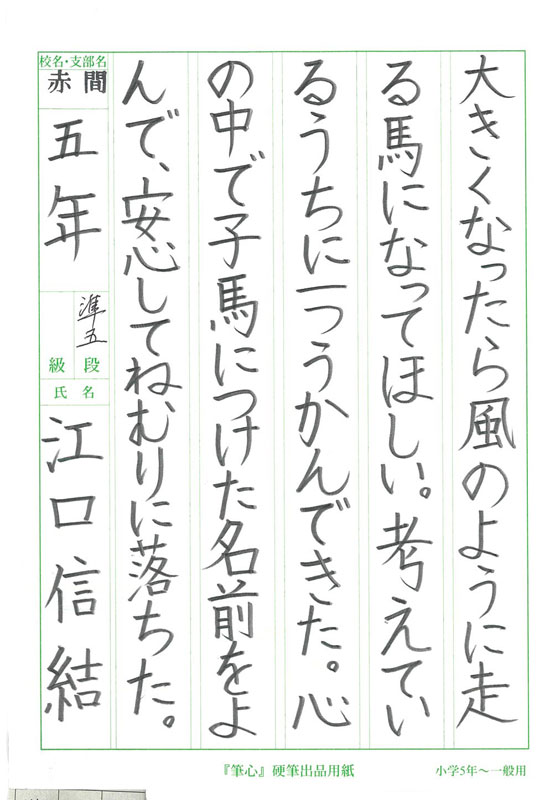 大きくなったら風のように走
る馬になってほしい。考えてい
るうちに一つうかんできた。心
の中で子馬につけた名前をよ
んで、安心してねむりに落ちた。
校名・支部名
赤間
五年
準五
段
級
氏名
江口信結
『筆心』硬筆出品用紙
小学5年〜一般用